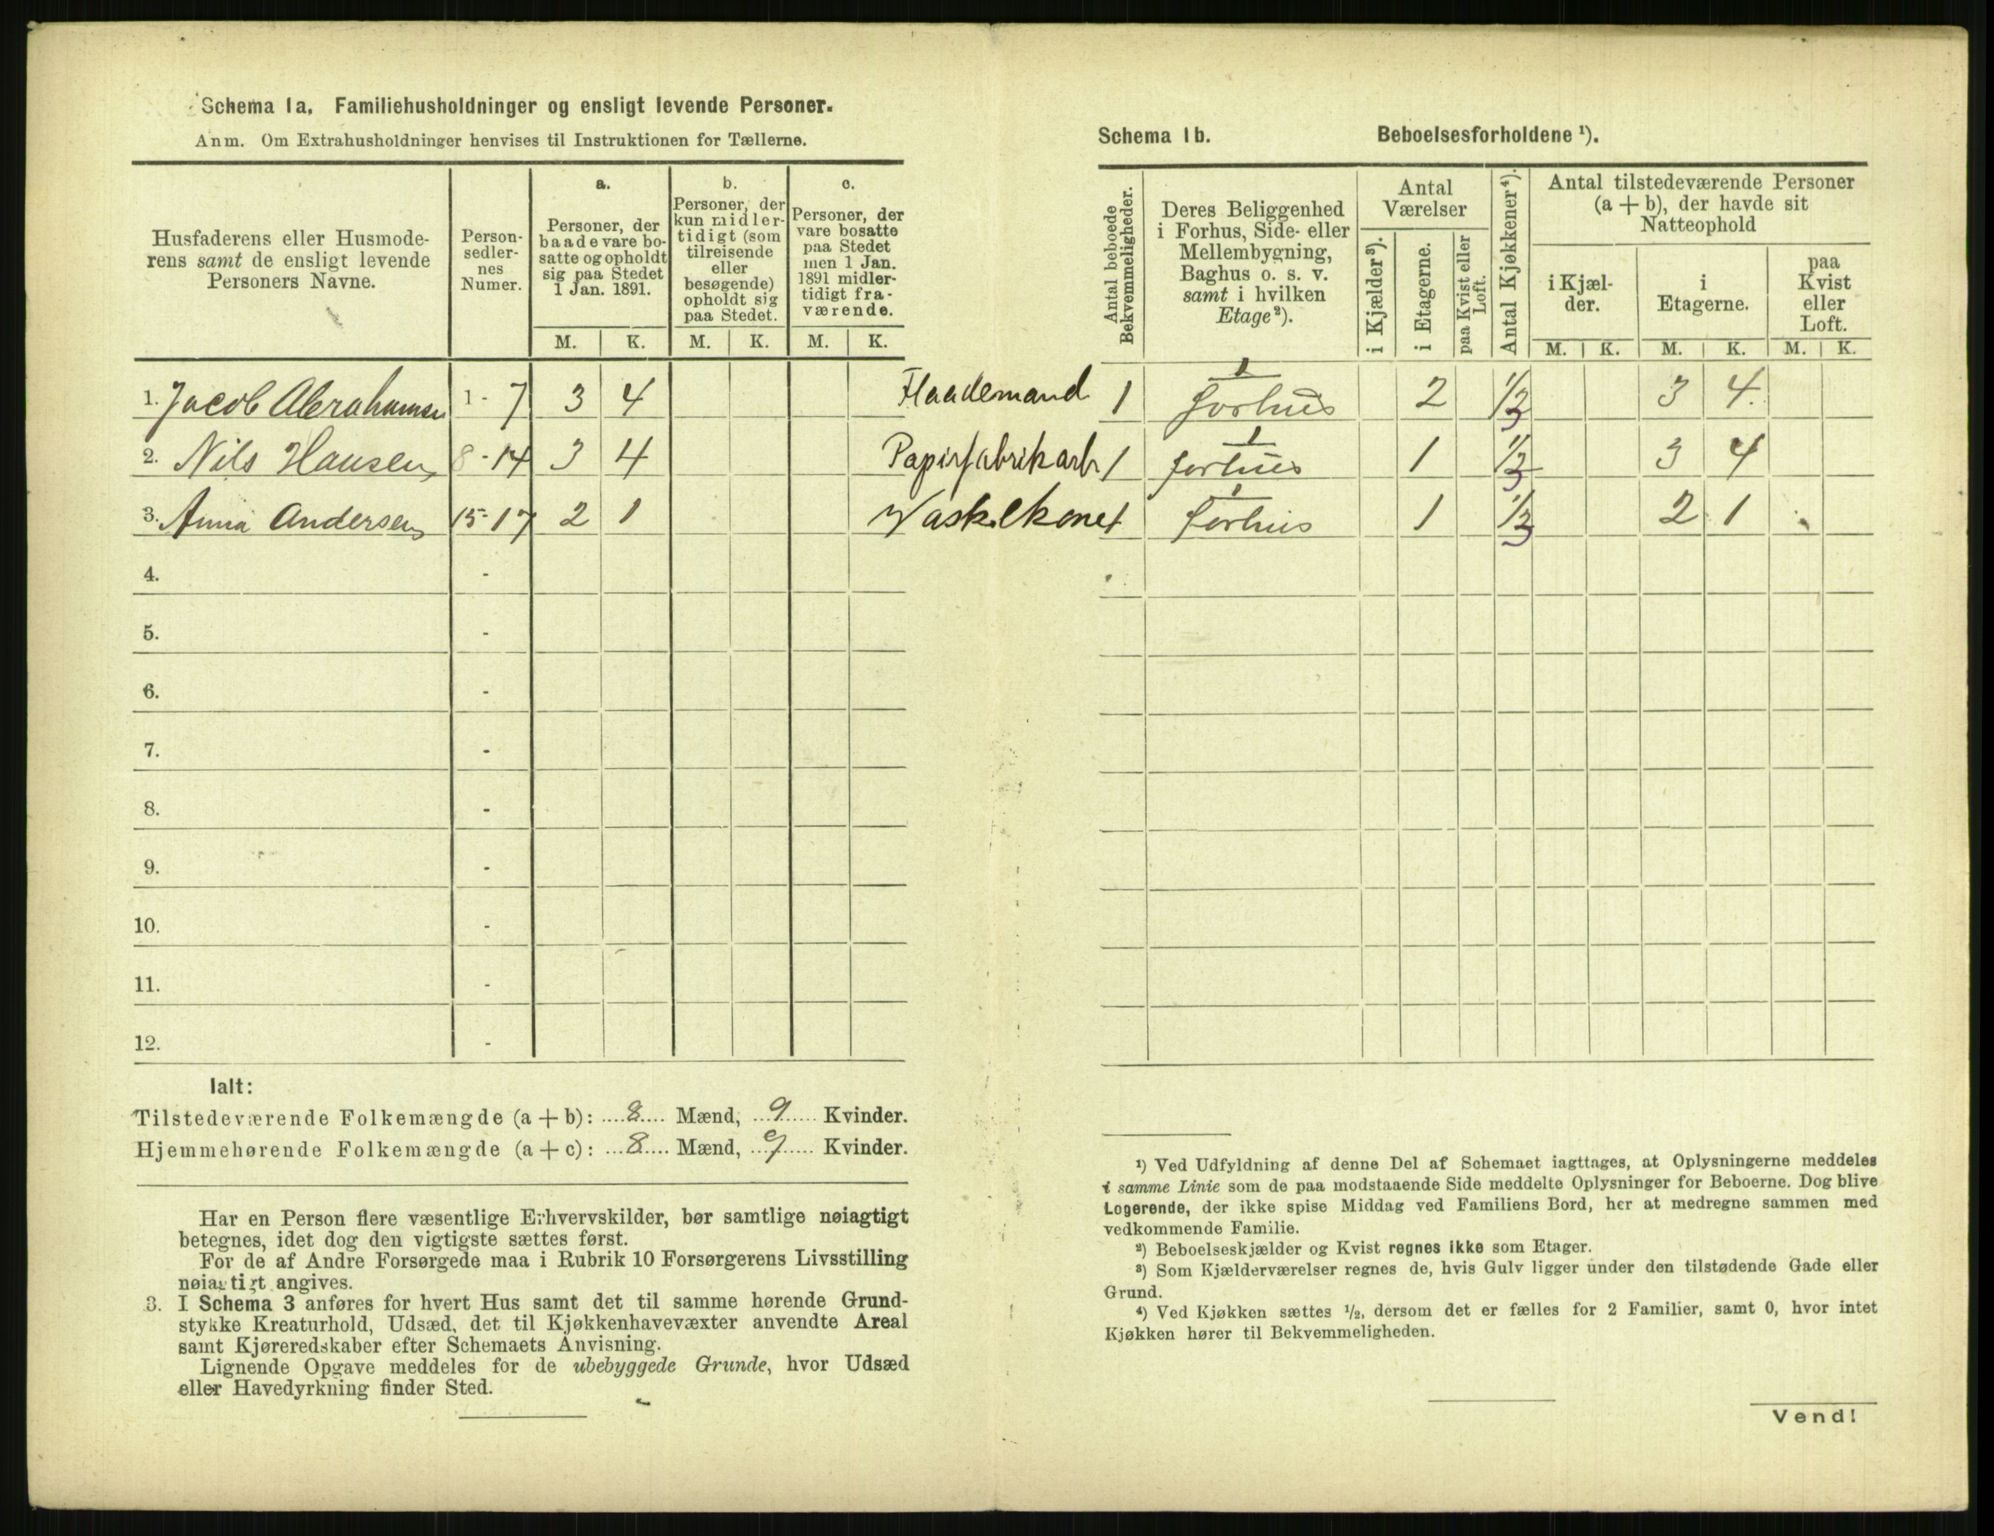 Schema 1a. Familiehusholdninger og ensligt levende Personer.
Anm. Om Extrahusholdninger henvises til Instruktionen for Tællerne.
Husfaderens eller Husmode-
rens samt de ensligt levende
Personers Navne.
Person-
sedler-
nes
Numer.
a.
Personer, der
baade vare bo-
satte og opholdt
sig paa Stedet
1 Jan. 1891.
b.
Personer, der
kun midler-
tidigt (som
tilreisende
eller
besøgende)
opholdt sig
paa Stedet.
c.
Personer, der
vare bosatte
paa Stedet
men 1 Jan.
1891 midler-
tidigt fra-
værende.
M. K. M. K. M. K.
1. Jacob Abrahamsen 1 - 7 3 4
2. Nils Hansen 8 - 14 3 4
3. Anna Andersen 15 - 17 2 1
4. -
5. -
6. -
7. -
8. -
9. -
10. -
11. -
12. -
Ialt:
Tilstedeværende Folkemængde (a + b): 8 Mænd, 9 Kvinder.
Hjemmehørende Folkemængde (a + c): 8 Mænd, 9 Kvinder.
Har en Person flere væsentlige Erhvervskilder, bør samtlige nøiagtigt
betegnes, idet dog den vigtigste sættes først.
For de af Andre Forsørgede maa i Rubrik 10 Forsørgerens Livsstilling
nøiagtigt angives.
3. I Schema 3 anføres for hvert Hus samt det til samme hørende Grund-
stykke Kreaturhold, Udsæd, det til Kjøkkenhavevæxter anvendte Areal
samt Kjøreredskaber efter Schemaets Anvisning.
Lignende Opgave meddeles for de ubebyggede Grunde, hvor Udsæd
eller Havedyrkning finder Sted.
Schema 1b. Beboelsesforholdene ¹).
Antal beboede
Bekvemmeligheder.
Deres Beliggenhed
i Forhus, Side- eller
Mellembygning,
Baghus o. s. v.
samt i hvilken
Etage²).
Antal
Værelser
i Kjælder³).
i Etagerne.
paa Kvist eller
Loft.
Antal Kjøkkener⁴).
Antal tilstedeværende Personer
(a + b), der havde sit
Natteophold
i Kjæl-
der.
i
Etagerne.
paa
Kvist
eller
Loft.
M. K. M. K. M. K.
Flaademand 1 1 forhus 2 1/3 3 4
Papirfabrikarb 1 1 forhus 1 1/3 3 4
Waskekone 1 1 forhus 1 1/3 2 1
¹) Ved Udfyldning af denne Del af Schemaet iagttages, at Oplysningerne meddeles
i samme Linie som de paa modstaaende Side meddelte Oplysninger for Beboerne. Dog blive
Logerende, der ikke spise Middag ved Familiens Bord, her at medregne sammen med
vedkommende Familie.
²) Beboelseskjælder og Kvist regnes ikke som Etager.
³) Som Kjælderværelser regnes de, hvis Gulv ligger under den tilstødende Gade eller
Grund.
⁴) Ved Kjøkken sættes ½, dersom det er fælles for 2 Familier, samt 0, hvor intet
Kjøkken hører til Bekvemmeligheden.
Vend!